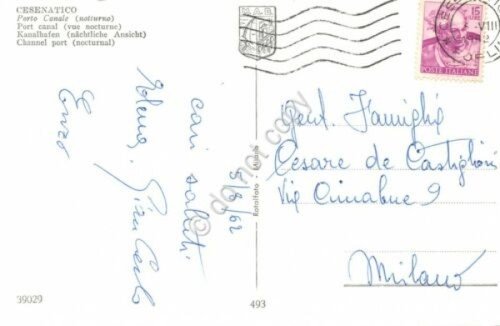 CESENATICO
Porto Canale (notturno)
Port canal (vue nocturne)
Kanalhafen (nächtliche Ansicht)
Channel port (nocturnal)
15
POSTE ITALIANE
VIII
cari saluti
5/8/62
Edera, Gian Carlo
Enzo
Gent. Famiglia
Cesare de Castiglioni
Via Cimabue 9
Milano
Rotalfoto - Milano
39029
493